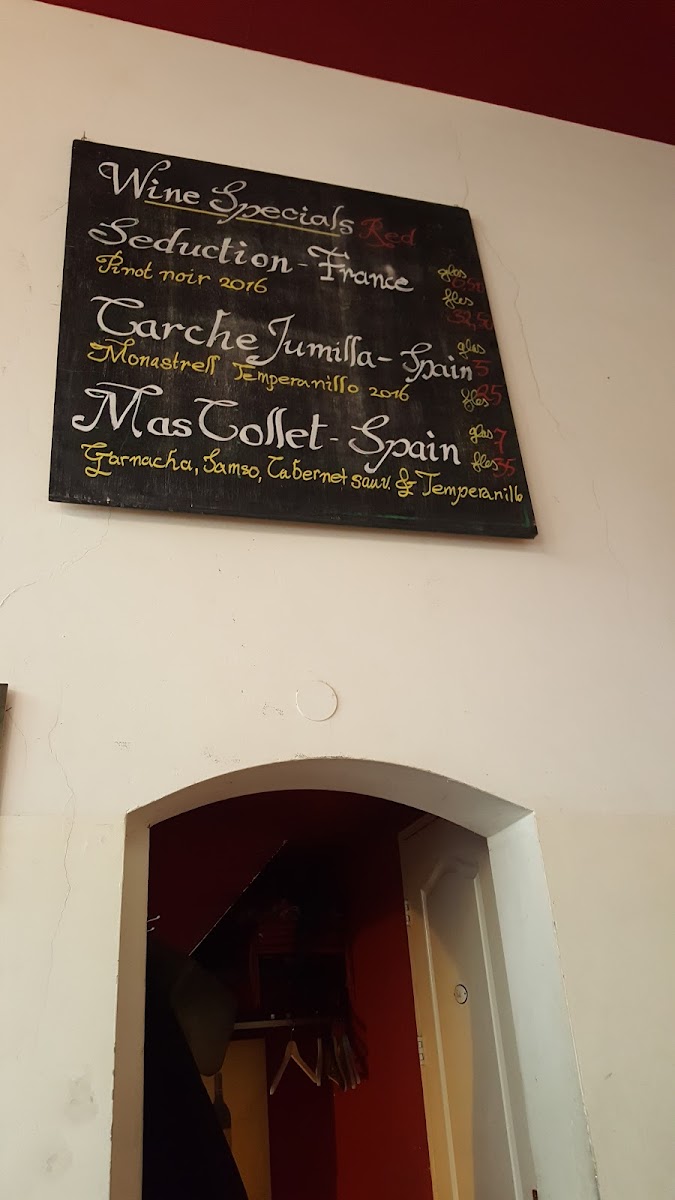 Wine Specials Red
Seduction - France glas 6,50
Pinot noir 2016 fles
32,50
Carche Jumilla - Spain glas 5
Monastrell Temperanillo 2016 fles 25
Mas Collet - Spain glas 7
Garnacha, Samso, Cabernet sauv. & Temperanillo fles 35